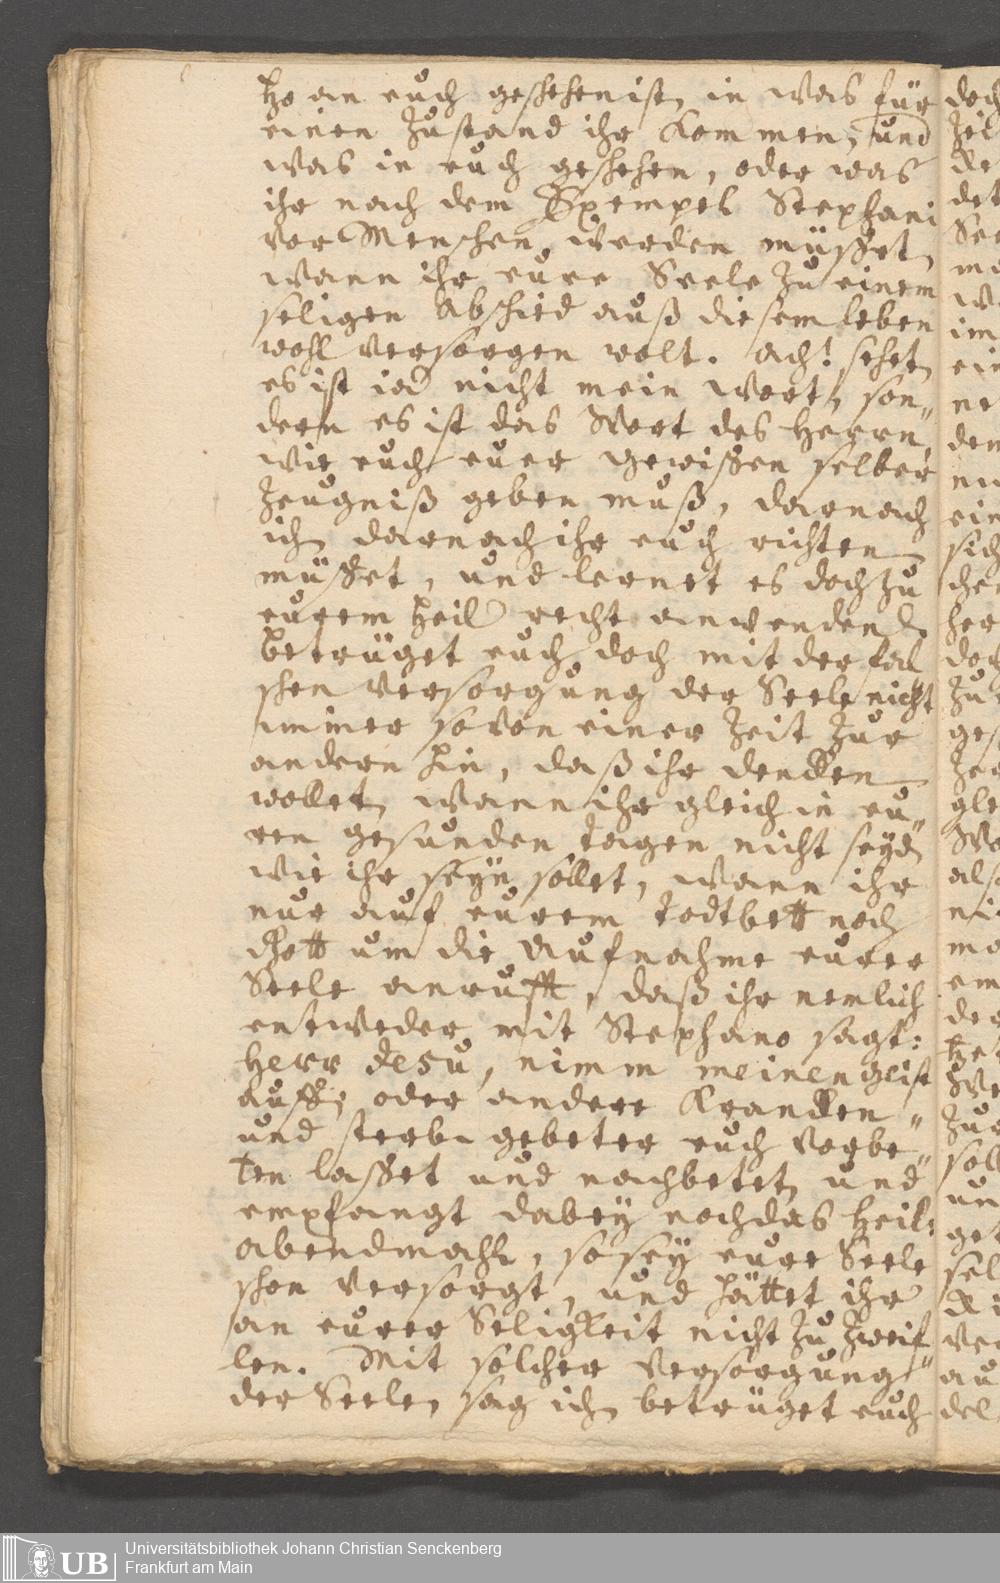 tzo an euch geschehen ist, in was für
einen Zustand ihr kommen, und
was in euch geschehen, oder was
ihr nach dem Exempel Stephani
vor Menschen werden müsset,
wann ihr eure Seele zu einem
seligen Abschied auß diesem leben
wohl versorgen wolt. ach! sehet,
es ist ia nicht mein wort, son„
dern es ist das Wort des Herrn
wie euch euer gewissen selber
Zeugniß geben muß, darnach
ich, darnach ihr euch richten
müsset, und lernet es doch zu
eurem Heil recht anwenden,
betrüget euch doch mit der fal
schen versorgung der Seele nicht
immer so von einer Zeit zur
andern hin, daß ihr dencken
wollet, wann ihr gleich in eu„
ren gesunden tagen nicht seyd,
wie ihr seyn sollet, wann ihr
nur auf eurem todtbett noch
Gott um die Aufnahme eurer
Seele anrufft, daß ihr nemlich
entweder mit Stephano sagt:
Herr Jesu, nimm meinen Geist
auff; oder andere Krancken„
und sterb- gebeter euch vorbe„
ten lasset und nachbetet, und
empfangt dabey noch das Heil:
abendmahl, so sey eure Seele
schon versorgt, und hättet ihr
an eurer Seligkeit nicht zu zweif„
len. Mit solcher versorgung
der Seelen, sag ich, betrüget euch
Universitätsbibliothek Johann Christian Senckenberg
Frankfurt am Main
UB